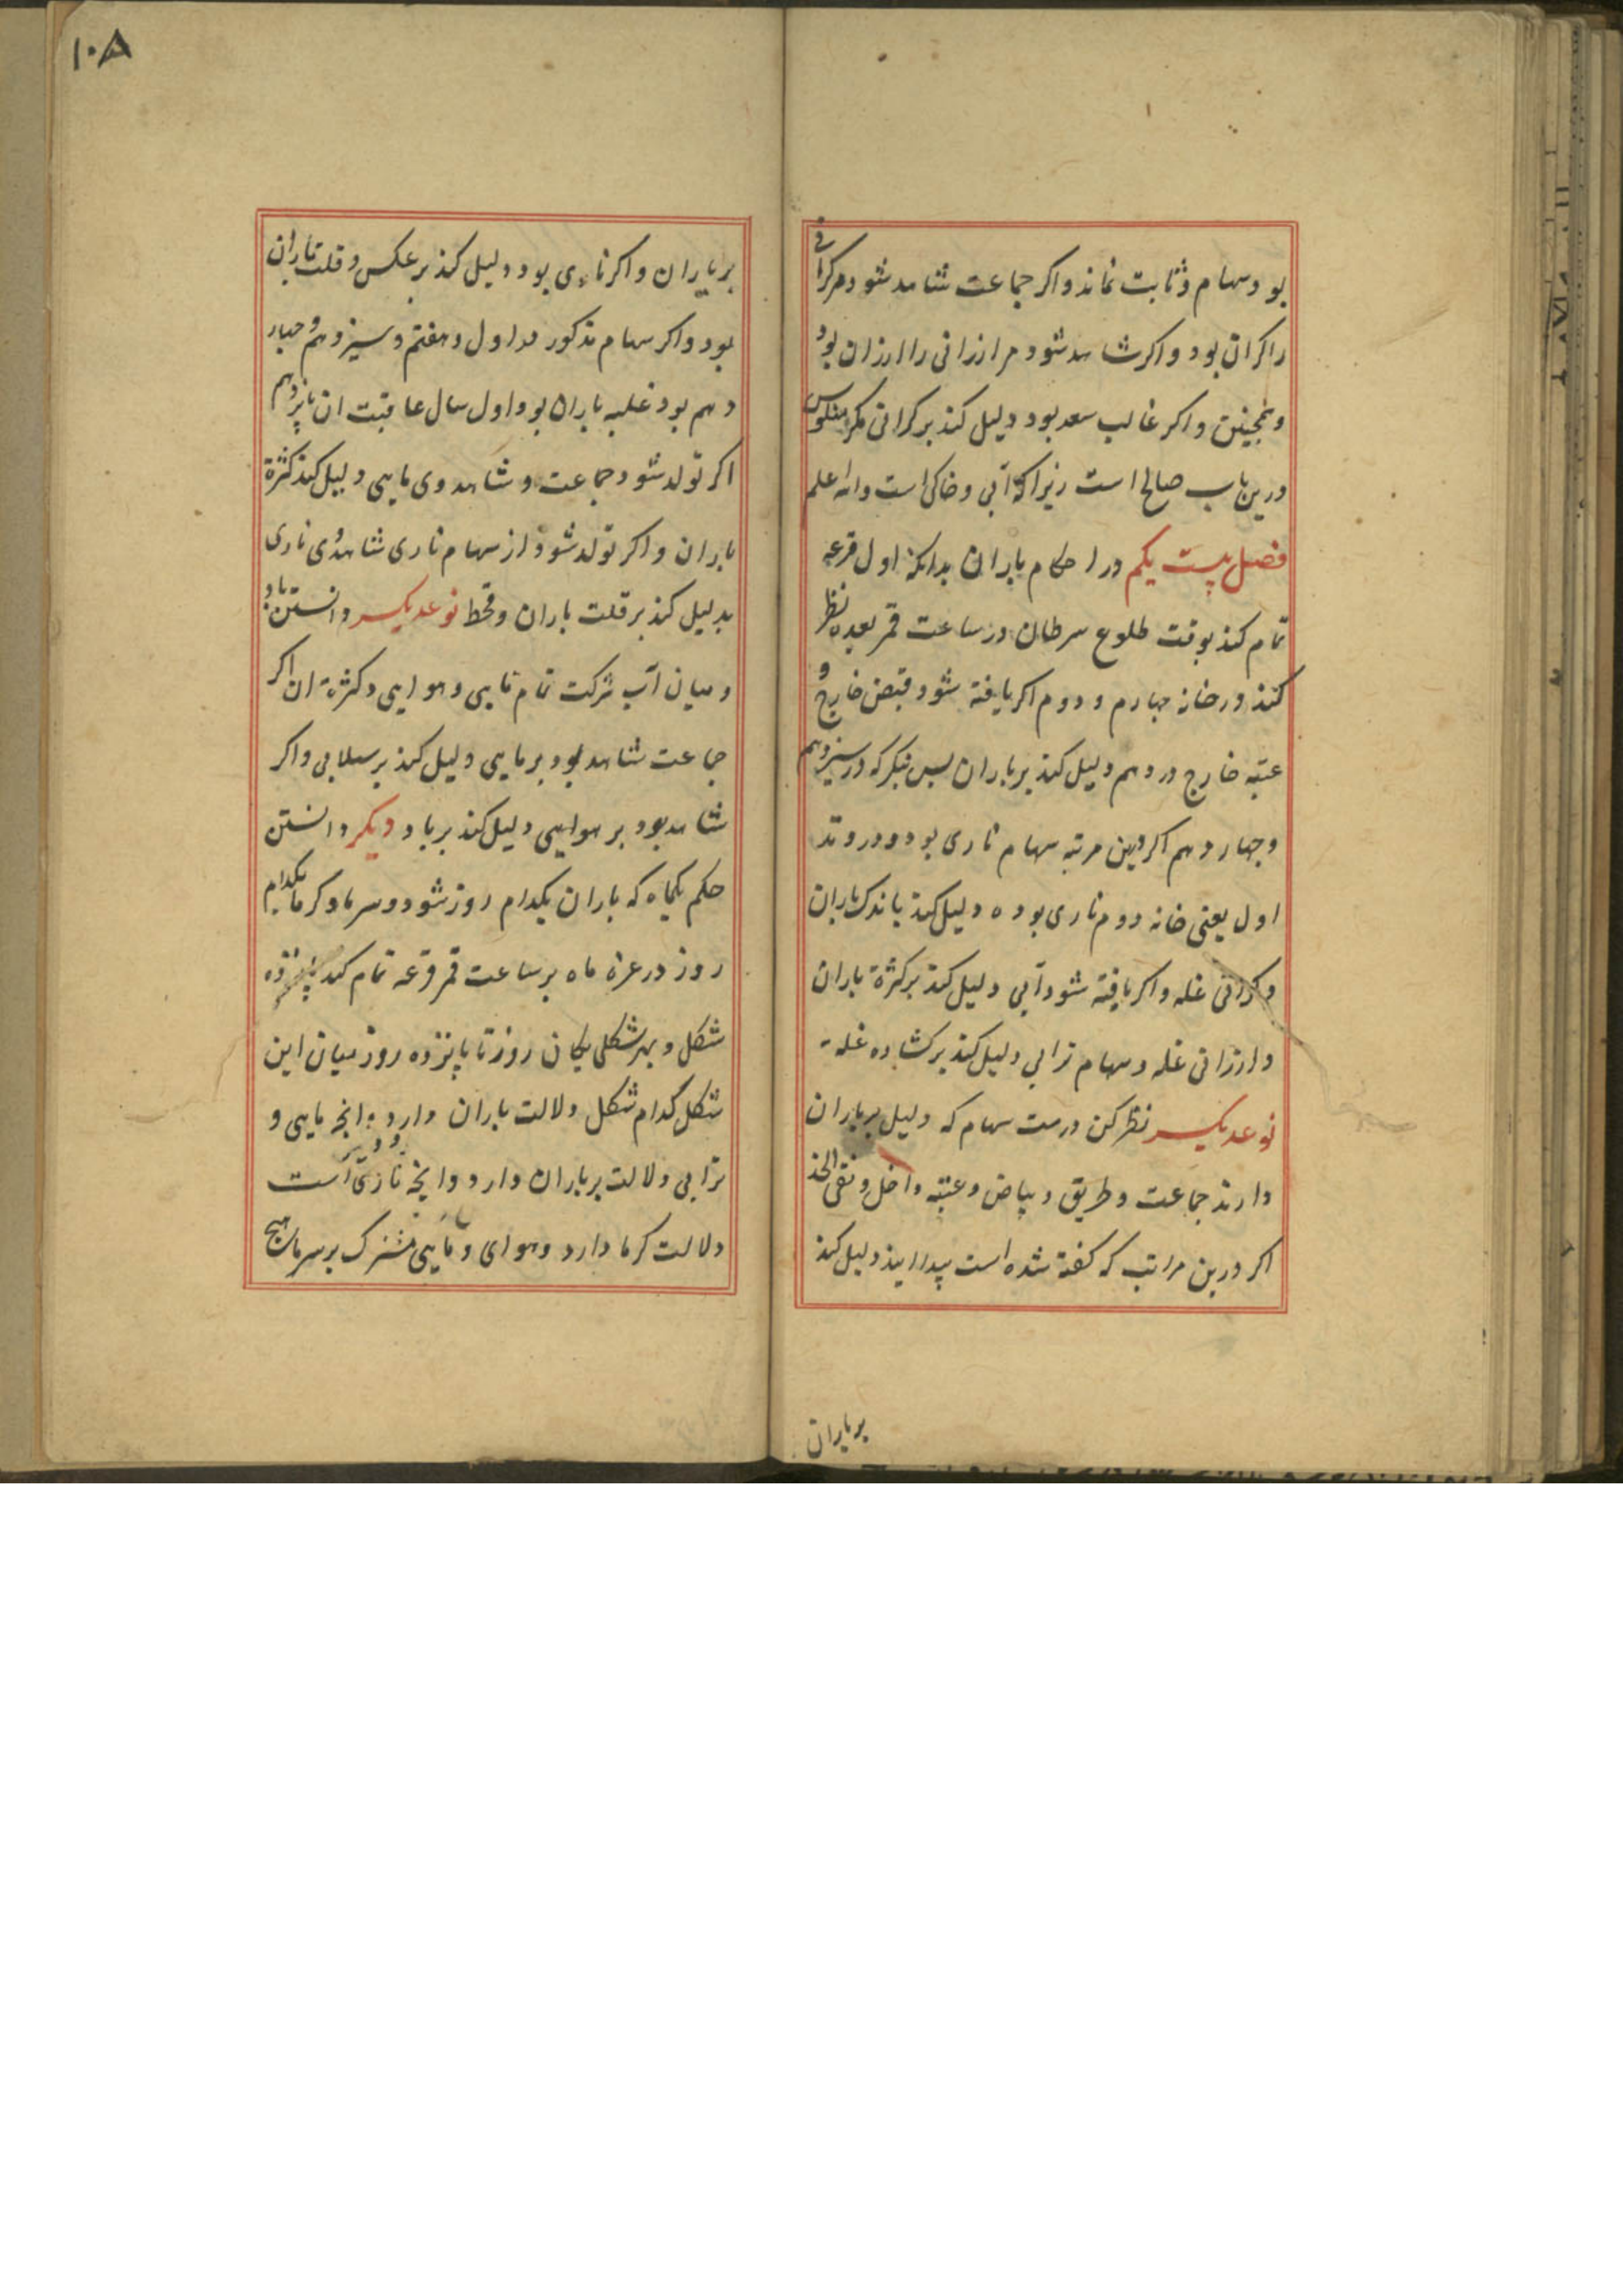 بود سهام و ثابت نماند و اکر جماعت شاهد شود مر کرانی
را کران بود و اکر شاهد شود مر ارزانی را ارزان بود
و همچنین و اکر غالب سعد بود دلیل کند بر کرانی مکر منکوس
درین باب صالح است زیرا که آبی و خاکی است والله اعلم
فصل بیست یکم در احکام باران بدانکه اول قرعه
تمام کند بوقت طلوع سرطان در ساعت قمر بعده نظر
کند در خانه چهارم و دوم اکر یافته شود قبض خارج و
عتبه خارج در دهم دلیل کند بر باران پس بنکر که در سیزدهم
و چهاردهم اکر درین مرتبه سهام ناری بود و در وتد
اول یعنی خانه دوم ناری بوده دلیل کند باندک باران
و کرانی غله و اکر یافته شود آبی دلیل کند بر کثرة باران
و ارزانی غله و سهام ترابی دلیل کند بر کشاده غله
نوعدیکر نظر کن درست سهام که دلیل بر باران
دارند جماعت و طریق و بیاض و عتبه داخل و نقی الخد
اکر درین مراتب که کفته شده است پیدا ایند دلیل کند
بر باران
۱۰۸
بر باران و اکر ناری بود دلیل کند بر عکس و قلت باران
بود و اکر سهام مذکور در اول و هفتم و سیزدهم و چهار
دهم بود غلبه باران بود اول سال عاقبت ان پانزدهم
اکر تولد شود جماعت و شاهد وی مایی دلیل کند کثرة
باران و اکر تولد شود از سهام ناری شاهد وی ناری
بدلیل کند بر قلت باران و قحط نوعدیکر دانستن باد
و میان آب شرکت تمام مایی و هوایی و کثرة ان اکر
جماعت شاهد بود بر مایی دلیل کند بر سیلابی و اکر
شاهد بود بر هوایی دلیل کند بر باد دیکر دانستن
حکم یکماه که باران بکدام روز شود و سرما و کرما بکدام
روز در غره ماه بر ساعت قمر قرعه تمام کند پانزده
شکل و بهر شکلی یکان روز تا پانزده روز میان این
شکل کدام شکل دلالت باران دارد انچه مایی و
ترابی دلالت بر باران دارد و انچه ناری است
دلالت کرما دارد و هوای و مایی مشترک بر سرما هیچ